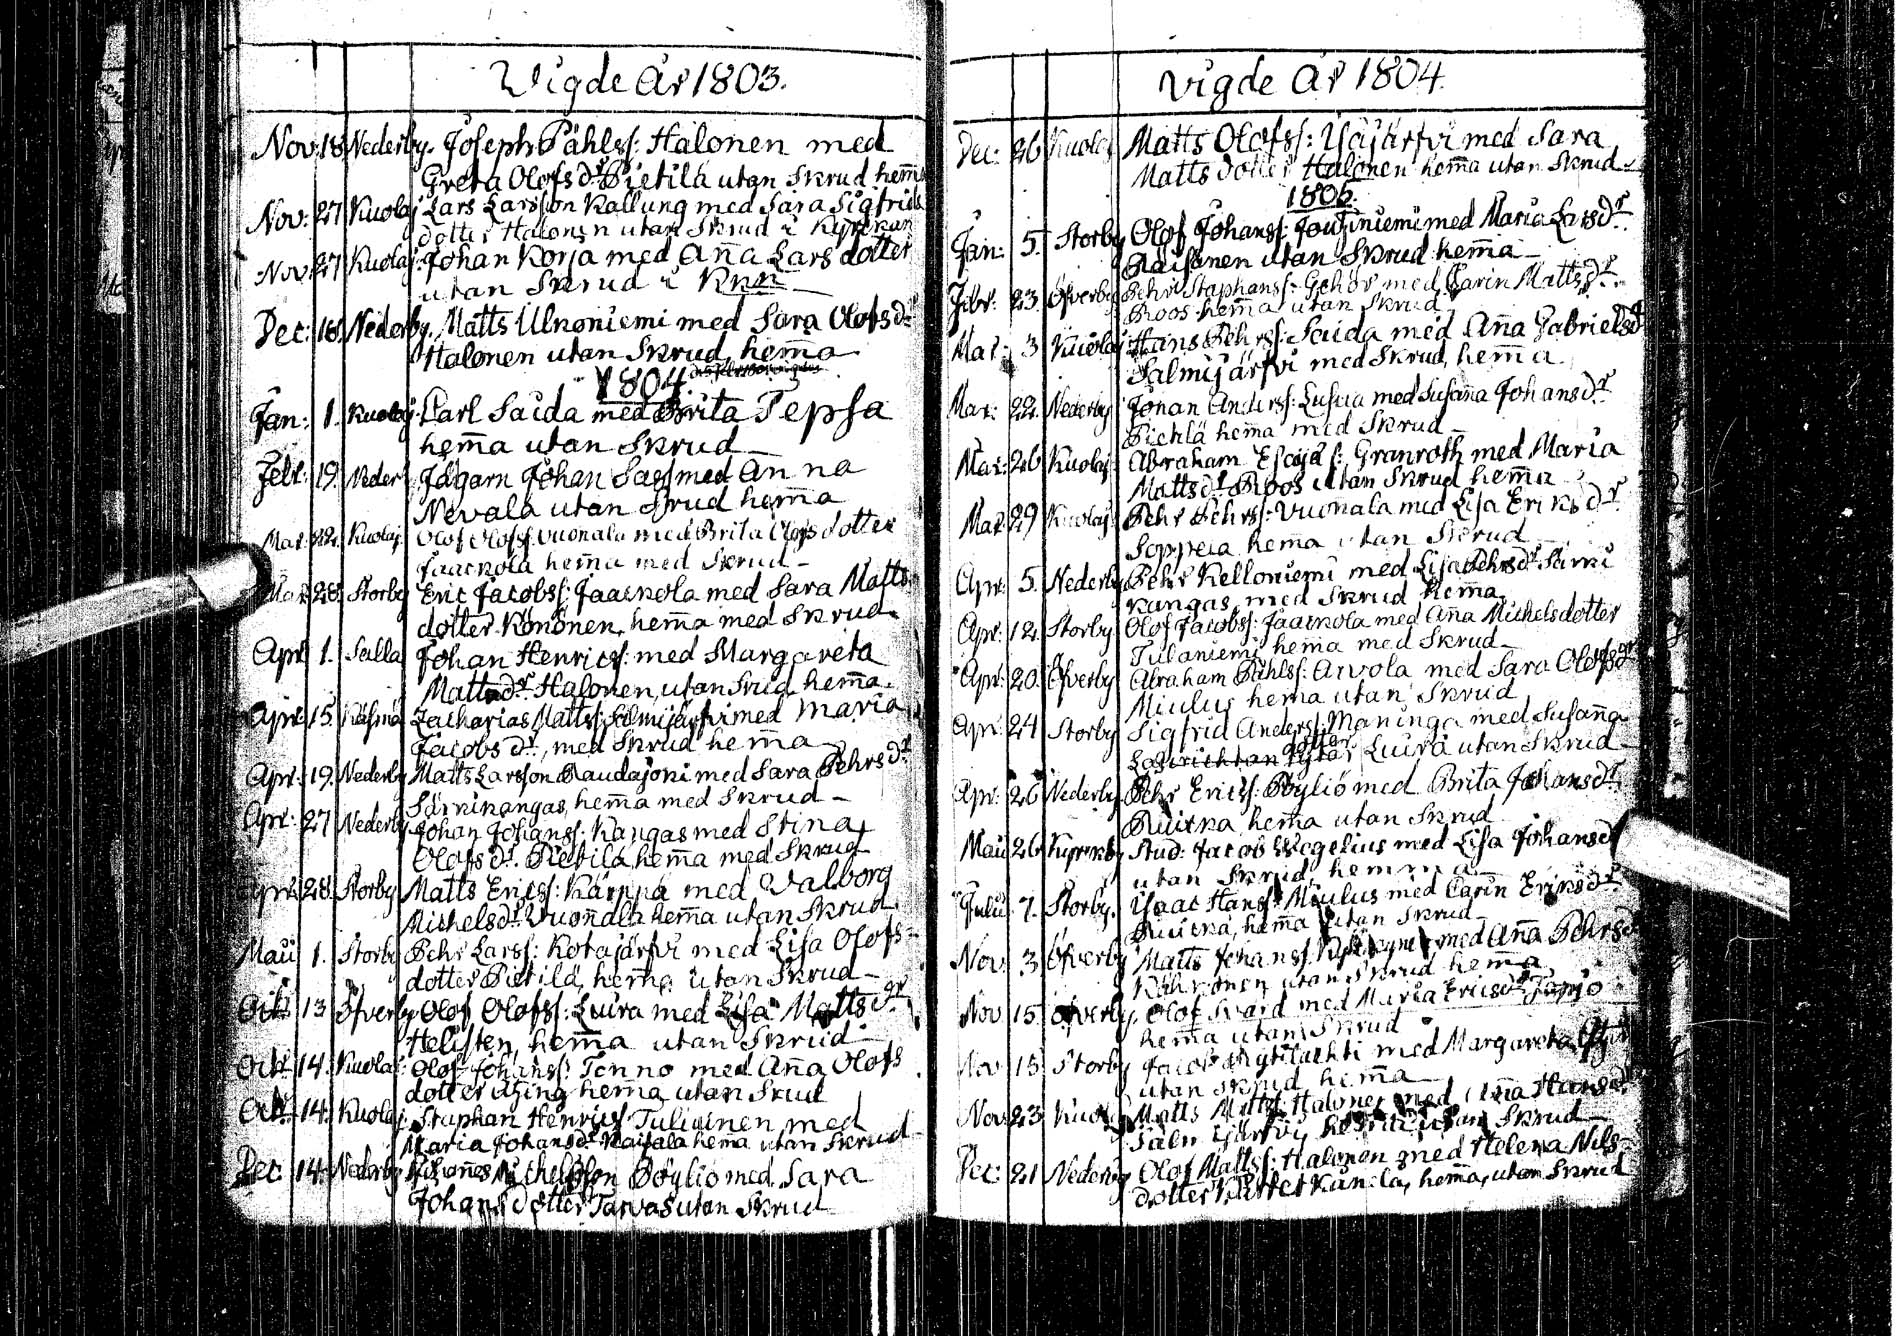 Vigde År 1803.
Nov: 18 Nederby. Joseph Påhlss: Halonen med
Greta Olofs dr Pietilä utan Skrud hem̄a
Nov: 27 Kuolaj. Lars Larsson Kallung med Sara Sigfrids
dotter Halonen utan Skrud i Kyrckan
Nov. 27 Kuolaj: Johan Korja med An̄a Lars dotter
utan Skrud i
Dec: 18. Nederby. Matts Ulkuniemi med Sara Olofs dr
Halonen utan Skrud, hem̄a
1804.
Jan: 1. Kuolaj. Carl Saida med Brita Tepsa
hem̄a utan Skrud
Febr: 19. Neder Jägarn Johan Sass med Anna
Nevala utan Skrud hem̄a
Mar: 22. Kuolaj. Olof Olofss. Vuonala med Brita Olofs dotter
Jaackola hem̄a med Skrud
Mar. 28. Storby Eric Jacobss: Jaackola med Sara Matts
dotter Könönen, hem̄a med Skrud
Apr. 1. Salla Johan Henricss: med Margareta
Matts dr Halonen, utan Skrud hem̄a
Apr: 15. Zacharias Mattss: Salmijärfvi med Maria
Jacobs dr, med Skrud hem̄a
Apr: 19. Nederby Matts Larsson Raudajoni med Sara Pehrs dr
Särkikangas, hem̄a med Skrud
Apr: 27 Nederby Johan Johanss: Kangas med Stina
Olofs dr. Pietilä, hem̄a med Skrud
Apr: 28. Storby Matts Ericss: Kärppä med Valborg
Michels dr Vuon̄ala hem̄a utan Skrud
Maii 1. Storby Pehr Larss: Kotajärfvi med Lisa Olofs-
dotter Pietilä, hem̄a utan Skrud
Octr 13 Öfverby Olof Olofss: Luira med Lisa Matts dr
Helisten, hem̄a utan Skrud
Octr 14. Kuolaj: Olof Johanss: Tenno med An̄a Olofs
dotter hem̄a utan Skrud
Octr 14. Kuolaj. Staphan Henricss Tuliainen med
Maria Johans dr hem̄a utan Skrud
Dec: 14. Nederby Johan̄es Michelsson Pöyliö med Sara
Johans dotter Tarvas utan Skrud
Vigde År 1804.
Dec: 26 Kuolaj Matts Olofss: Ysajärfvi med Sara
Matts dotter Halonen hem̄a utan Skrud
1805.
Jan: 5. Storby Olof Johanss: Joutziniemi med Maria Lars dr
Räisänen utan Skrud hem̄a
Febr. 23. Öfverby Pehr Staphanss: Gehör med Carin Matts dr
Roos hem̄a utan Skrud
Mar: 3 Kuolaj Hans Pehrs: Saida med An̄a Gabriels dr
Salmijärfvi med Skrud, hem̄a
Mar: 22. Nederby Johan Anderss: Lusua med Susan̄a Johans dr
Pichlä hem̄a med Skrud
Mar: 26 Kuolaj: Abraham Esaias: Granroth med Maria
Matts dr Roos utan Skrud hem̄a
Mar: 29 Kuolaj: Pehr Pehrss: Vuon̄ala med Lisa Eriks dr
Soppela hem̄a utan Skrud
Apr: 5. Nederby Pehr Kelloniemi med Lisa Pehrs dr Särki
kangas, med Skrud hem̄a
Apr: 12. Storby Olof Jacobss: Jaackola med An̄a Michelsdotter
Tulaniemi hem̄a med Skrud
Apr: 20. Öfverby Abraham Påhlss: Arvola med Sara Olofs dr
Miulus hem̄a utan Skrud
Apr: 24 Storby Sigfrid Anderss: Maninga med Susan̄a
dotter Luira utan Skrud
Apr: 26 Nederby Pehr Ericss: Pöyliö med Brita Johans dr
Kuicka hem̄a utan Skrud
Maii 26. Kyrckby Stud: Jacob Wegelius med Lisa Johans dr
utan Skrud, hemma
Julii 7. Storby. Ysaac Hanss: Miulus med Carin Eriks dr
Kuicka, hem̄a utan Skrud
Nov: 3 Öfverby Matts Johanss. med An̄a Pehrs dr
utan Skrud hem̄a
Nov: 15. Öfverby Olof Svärd med Maria Erics dr
hem̄a utan Skrud
Nov: 15. Storby Jacob med Margareta
utan Skrud, hem̄a
Nov: 23 Kuolaj Matts Mattss: Halonen med An̄a Hans dr
Salmijärfvi, hem̄a utan Skrud
Dec: 21 Nederby Olof Mattss: Halonen med Helena Nils-
dotter hem̄a, utan Skrud